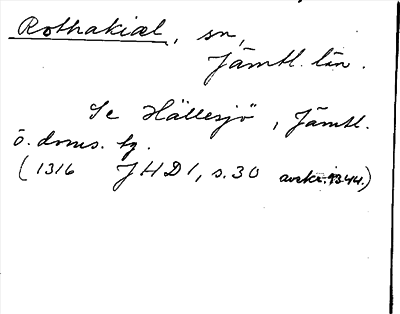 Rothakiæl, sn,
Jämtl. län.
Se Hällesjö, Jämtl.
ö. doms. tg.
(1316 JHD1, s. 30 avskr. 1344.)